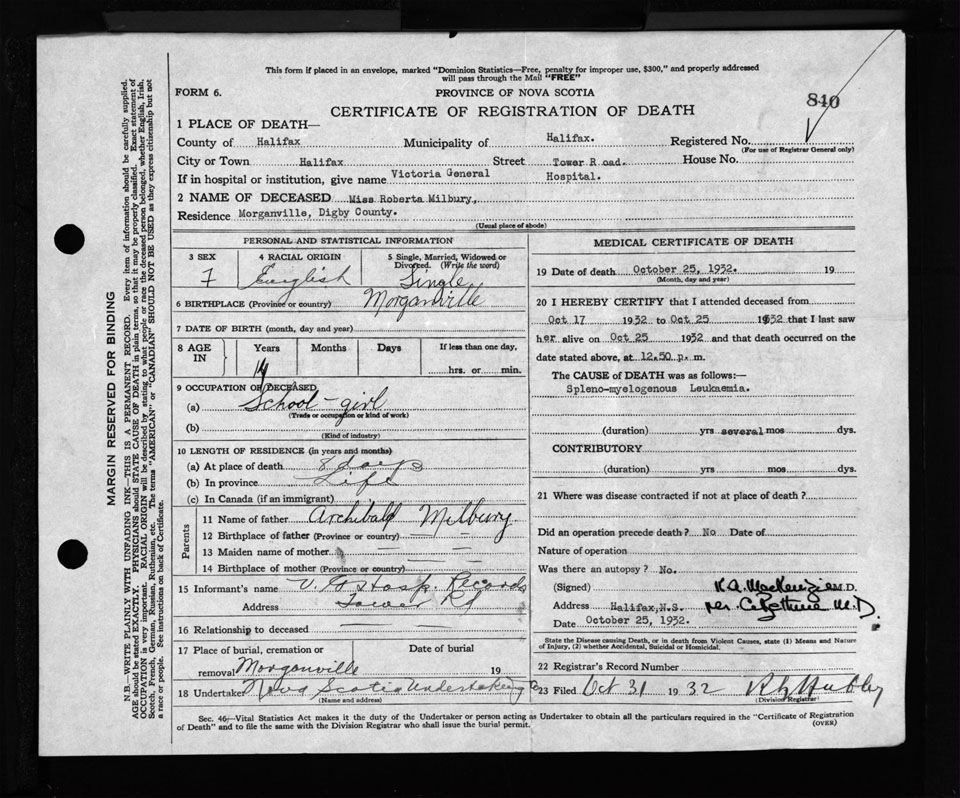 This form if placed in an envelope, marked "Dominion Statistics—Free, penalty for improper use, $300," and properly addressed
will pass through the Mail "FREE"
FORM 6.
PROVINCE OF NOVA SCOTIA
840
CERTIFICATE OF REGISTRATION OF DEATH
1 PLACE OF DEATH—
County of Halifax Municipality of Halifax. Registered No.
(For use of Registrar General only)
City or Town Halifax Street Tower Road. House No.
If in hospital or institution, give name Victoria General Hospital.
2 NAME OF DECEASED Miss Roberta Milbury,
Residence Morganville, Digby County.
(Usual place of abode)
PERSONAL AND STATISTICAL INFORMATION
3 SEX 4 RACIAL ORIGIN 5 Single, Married, Widowed or
Divorced. (Write the word)
F English Single
6 BIRTHPLACE (Province or country) Morganville
7 DATE OF BIRTH (month, day and year)
8 AGE IN Years Months Days If less than one day,
14 hrs. or min.
9 OCCUPATION OF DECEASED
(a) School-girl
(Trade or occupation or kind of work)
(b)
(Kind of industry)
10 LENGTH OF RESIDENCE (in years and months)
(a) At place of death 8 days
(b) In province Life
(c) In Canada (if an immigrant)
Parents
11 Name of father Archibald Milbury
12 Birthplace of father (Province or country) — —
13 Maiden name of mother — —
14 Birthplace of mother (Province or country) — —
15 Informant's name V. G. Hosp. Records
Address Tower Rd
16 Relationship to deceased
17 Place of burial, cremation or Date of burial
removal Morganville 19
18 Undertaker Nova Scotia Undertaking Co
(Name and address)
MEDICAL CERTIFICATE OF DEATH
19 Date of death October 25, 1932. 19
(Month, day and year)
20 I HEREBY CERTIFY that I attended deceased from
Oct 17 1932 to Oct 25 1932 that I last saw
her alive on Oct 25 1932 and that death occurred on the
date stated above, at 12.50 p. m.
The CAUSE of DEATH was as follows:—
Spleno-myelogenous Leukaemia.
(duration) yrs several mos dys.
CONTRIBUTORY
(duration) yrs mos dys.
21 Where was disease contracted if not at place of death?
Did an operation precede death? No Date of
Nature of operation
Was there an autopsy? No.
(Signed) K. A. MacKenzie M.D.
Address Halifax, N.S. per C. Bethune M.D.
Date October 25, 1932.
State the Disease causing Death, or in death from Violent Causes, state (1) Means and Nature
of Injury, (2) whether Accidental, Suicidal or Homicidal.
22 Registrar's Record Number
23 Filed Oct 31 1932
(Division Registrar)
Sec. 46—Vital Statistics Act makes it the duty of the Undertaker or person acting as Undertaker to obtain all the particulars required in the "Certificate of Registration
of Death" and to file the same with the Division Registrar who shall issue the burial permit.
(OVER)
MARGIN RESERVED FOR BINDING
N.B.—WRITE PLAINLY WITH UNFADING INK—THIS IS A PERMANENT RECORD. Every item of information should be carefully supplied.
AGE should be stated EXACTLY. PHYSICIANS should STATE CAUSE OF DEATH in plain terms, so that it may be properly classified. Exact statement of
OCCUPATION is very important. RACIAL ORIGIN will be described by stating to what people or race the deceased person belonged, whether English, Irish,
Scotch, French, German, Russian, Ruthenian, etc. The terms "AMERICAN" or "CANADIAN" SHOULD NOT BE USED as they express citizenship but not
a race or people. See instructions on back of Certificate.